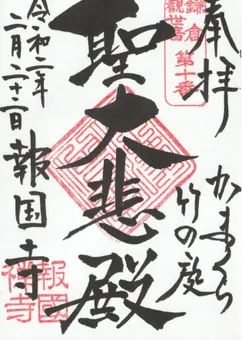 奉拝
鎌倉
観世音
第十番
かまくら
竹の庭
聖大悲殿
令和二年
二月二十一日
報国寺
報國
禅寺